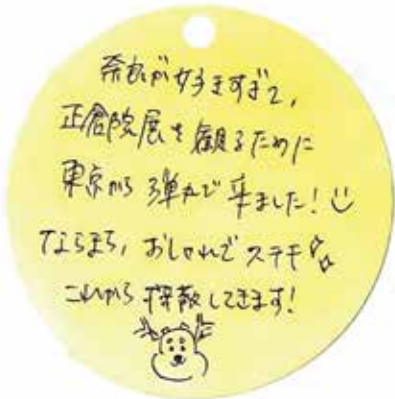 奈良が好きすぎて、
正倉院展を観るために
東京から弾丸で来ました!
ならまち、おしゃれでステキ
これから探散してきます!